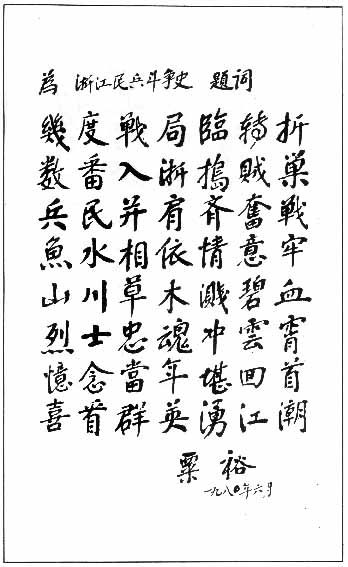 為 浙江民兵斗争史 題詞
幾度戰局臨轉折
数番入浙搗賊巢
兵民并肩齐奮戰
魚水相依情意牢
山川草木濺碧血
烈士忠魂冲雲霄
憶念當年堪回首
喜看群英湧江潮
粟裕
一九八〇年六月